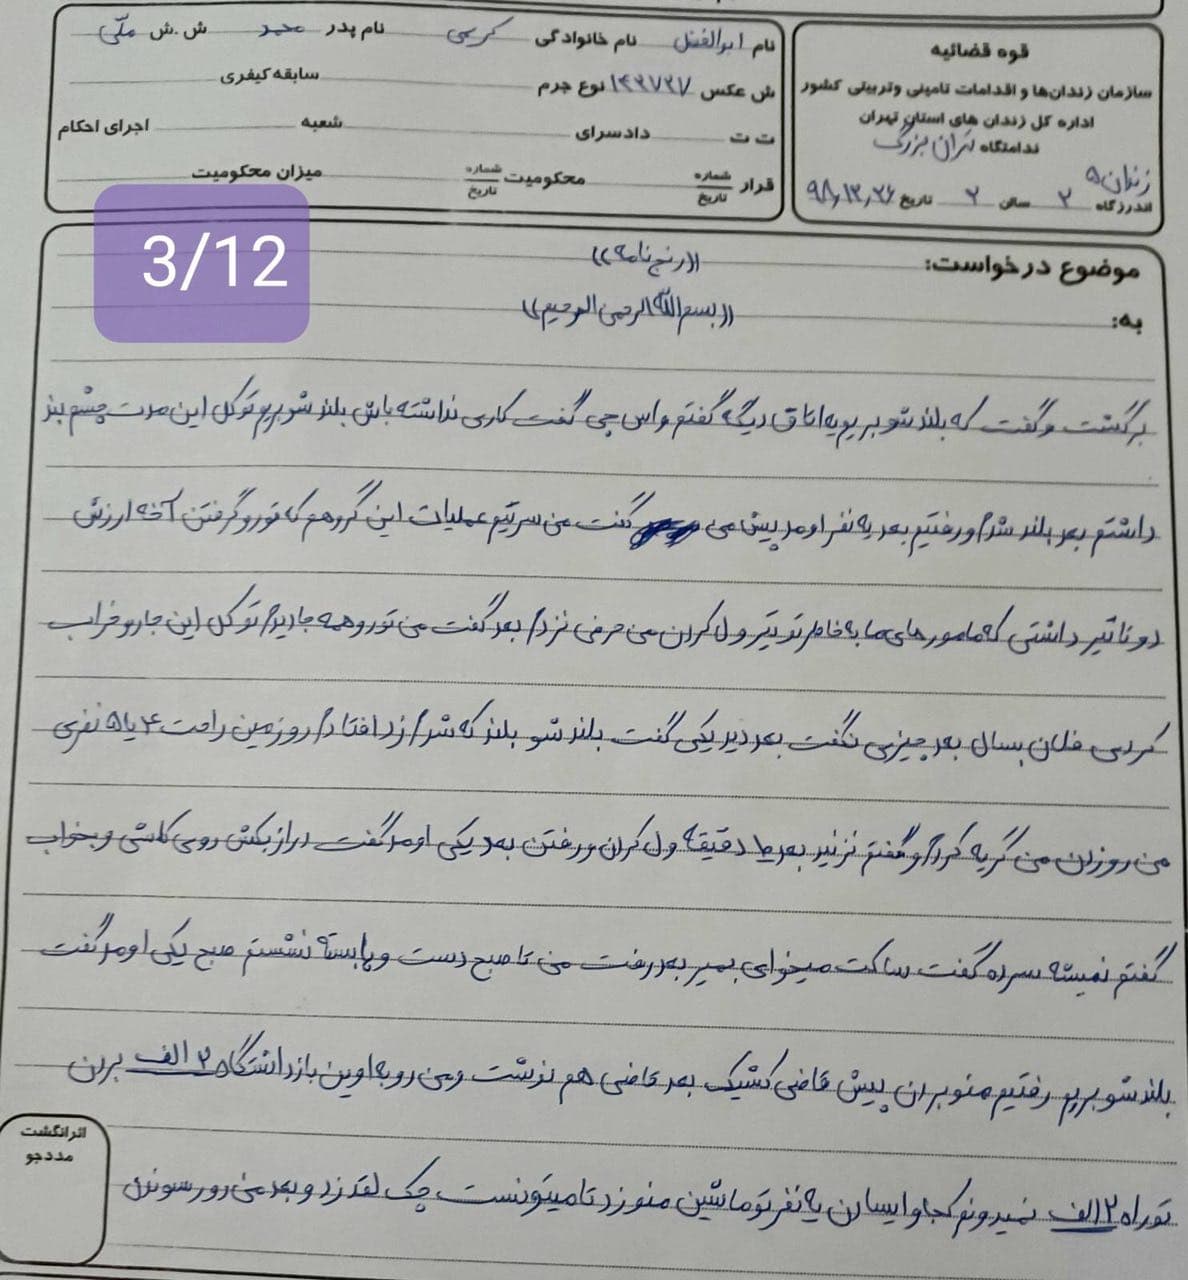 قوه قضائیه
سازمان زندان‌ها و اقدامات تامینی وتربیتی کشور
اداره کل زندان های استان تهران
ندامتگاه تهران بزرگ
زندان ۵
اندرزگاه ۲ سالن ۲ تاریخ ۹۸,۱۲,۲۶
نام ابوالفضل نام خانوادگی کریمی نام پدر محمد ش.ش ملّی
ش عکس ۱۴۲۷۲۷ نوع جرم سابقه کیفری
ت ت دادسرای شعبه اجرای احکام
قرار شماره تاریخ محکومیت شماره تاریخ میزان محکومیت
3/12
موضوع درخواست: ((رنج نامه))
به: ((بسم الله الرحمن الرحیم))
برگشت و گفت که بلند شو بریم یه اتاق دیگه گفتم واس چی گفت کاری نداشته باش بلند شو بریم تو کل این مدت چشم بند
داشتم بعد بلند شدم و رفتیم بعد یه نفر اومد پیش می گفت من سرتیم عملیات این گروهم که تورو گرفتن آخه ارزش
دو تا تیر داشتی که مامور های ما به خاطر تو تیر ول کردن من حرفی نزدم بعد گفت می تورو همه جا دیدم تو کل این جارو خراب
کردی فلان بسال بعد چیزی نگفت بعد دید یکی گفت بلند شو بلند که شدم زد افتادم رو زمین راحت ۴ یا ۵ نفری
می رو زدن من گریه کردم و گفتم نزنید بعد ۱۰ دقیقه ول کردن و رفتن بعد یکی اومد گفت دراز بکش روی کاشی و بخواب
گفتم نمیشه سرده گفت ساکت میخوای بمیر بعد رفت من تا صبح دست و پا بسته نشستم صبح یکی اومد گفت
بلند شو بریم رفتیم منو بردن پیش قاضی کشیک بعد قاضی هم نوشت و می رو به اوین بازداشتگاه ۲ الف بردن
تو راه ۲ الف نمیدونم کجا وایسادن یه نفر تو ماشین منو زد تا میتونست چک لقد زد و بعد می رو رسوندن
اثر انگشت
مددجو